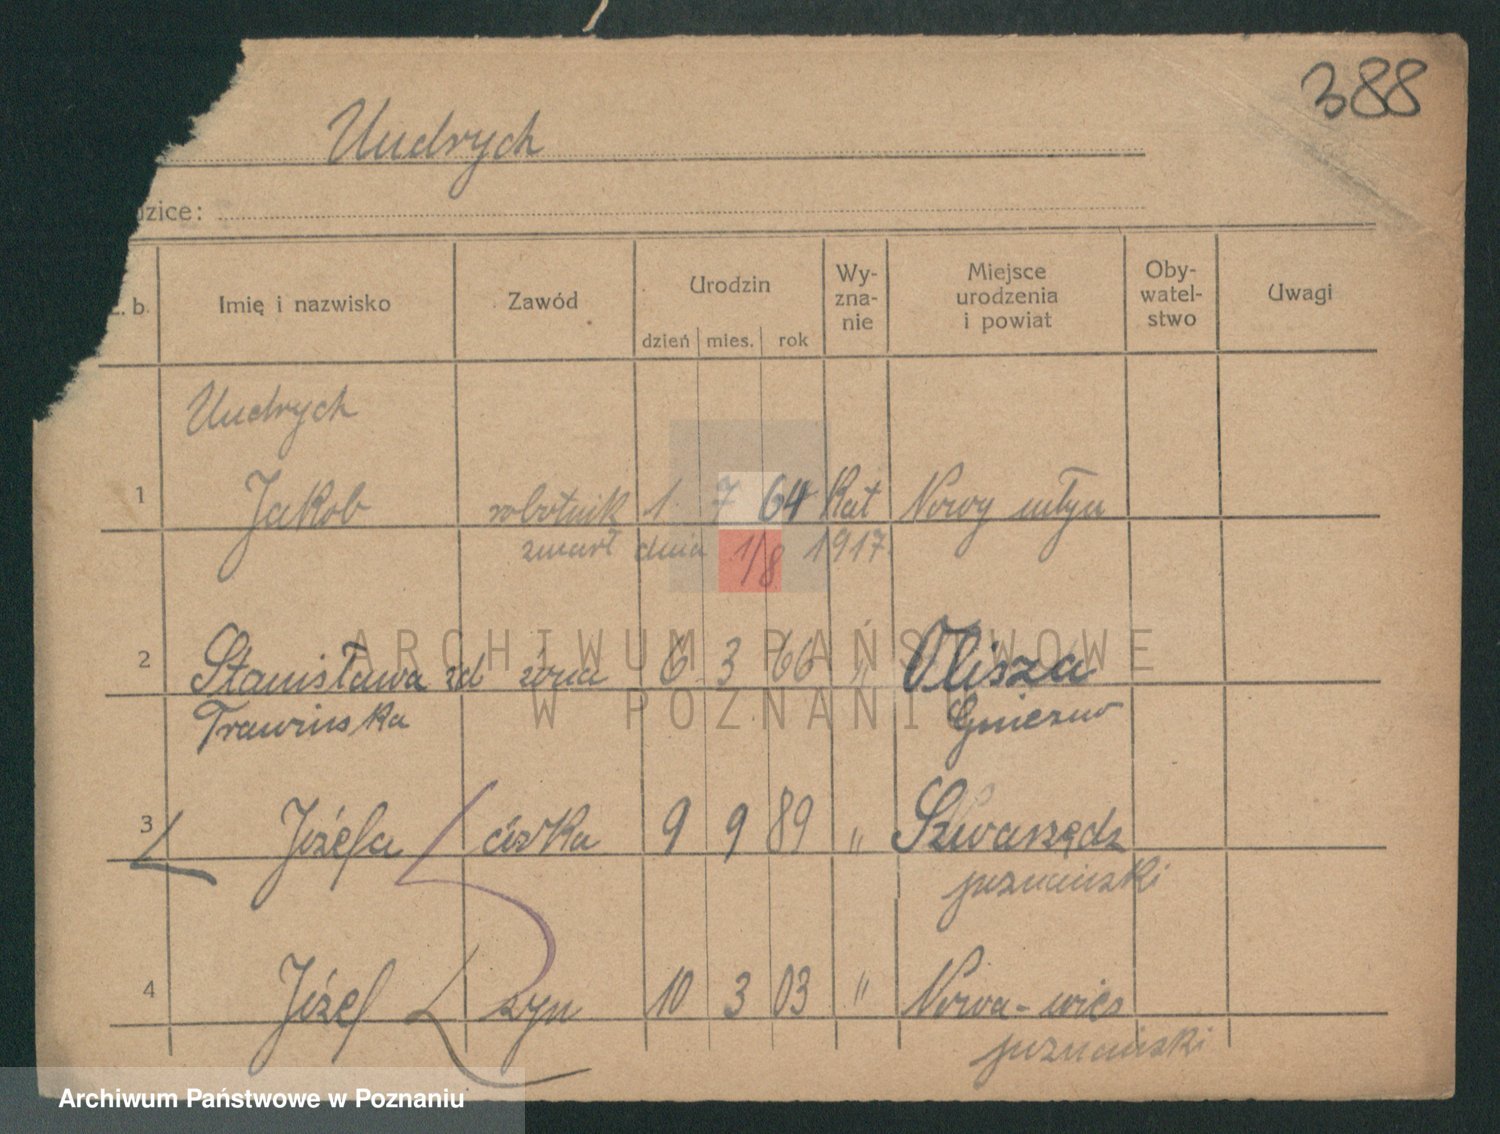 388
Undrych
dzice:
L. b.
Imię i nazwisko
Zawód
Urodzin
dzień mies. rok
Wy-
zna-
nie
Miejsce
urodzenia
i powiat
Oby-
watel-
stwo
Uwagi
Undrych
1 Jakob robotnik 1 7 64 Kat Nowy młyn
zmarł dnia 1/8 1917
2 Stanisława zd żona 6 3 66 "
Trawinska Gniezno
3 Józefa córka 9 9 89 " Szwarzędz
poznański
4 Józef syn 10 3 03 " Nowa-wies
poznański
ARCHIWUM PAŃSTWOWE
W POZNANIU
Archiwum Państwowe w Poznaniu